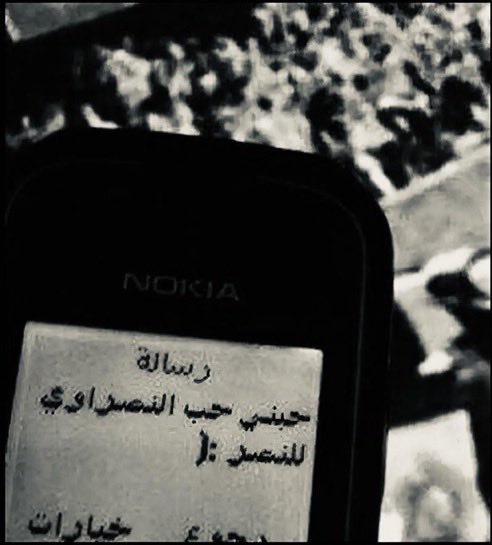 NOKIA
رسالة
حبني حب النصراوي
للنصر :(
خيارات رجوع